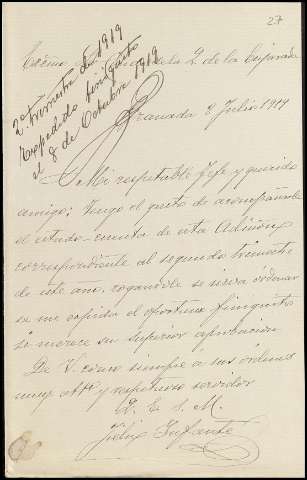 27
2º trimestre de 1919
Expedido finiquito
el 8 de Octubre 1919
Excmo de la de la Enjarada
Granada 8 Julio 1919
Mi respetable Jefe y querido
amigo; tengo el gusto de acompañarle
el estado-cuenta de esta Admón
correspondiente al segundo trimestre
de este año, rogandole se sirva ordenar
se me expida el oportuno finiquito
si merece su superior aprobacion
De V. como siempre a sus órdenes
muy attº y respetuoso servidor
Q. E. S. M.
Felix Infante